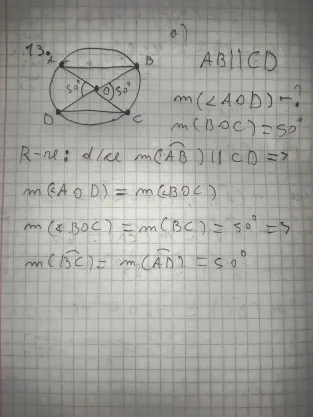 13.
a)
A B
50° O 50°
D C
AB||CD
m(∢AOD)-?
m(BOC)=50°
R-re: d/ce m(AB)||CD =>
m(∢AOD)=m(∢BOC)
m(∢BOC)=m(BC)=50° =>
m(BC)=m(AD)=50°